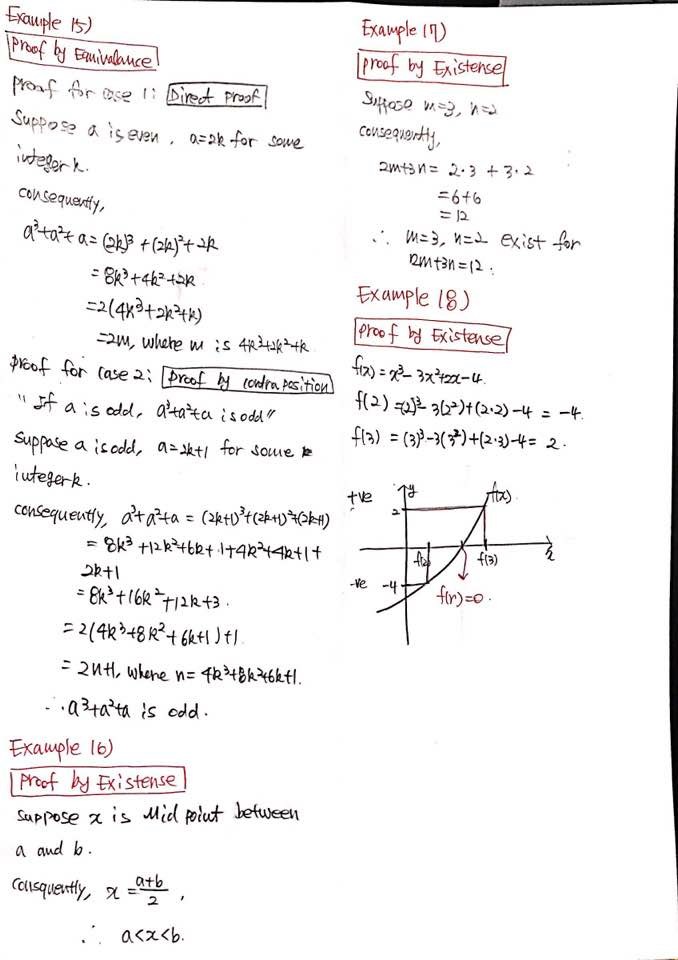 Example 15)
Proof by Equivalance
Proof for case 1: Direct Proof
Suppose a is even, a=2k for some
integer k.
consequently,
a³+a²+a = (2k)³ + (2k)² + 2k
= 8k³+4k²+2k
= 2(4k³+2k²+k)
= 2m, where m is 4k³+2k²+k
Proof for case 2: Proof by contraposition
" If a is odd, a³+a²+a is odd"
Suppose a is odd, a=2k+1 for some k
integer k.
consequently, a³+a²+a = (2k+1)³+(2k+1)²+(2k+1)
= 8k³+12k²+6k+1+4k²+4k+1+
2k+1
= 8k³+16k²+12k+3.
= 2(4k³+8k²+6k+1)+1
= 2n+1, where n= 4k³+8k²+6k+1.
∴ a³+a²+a is odd.
Example 16)
Proof by Existense
suppose x is Mid point between
a and b.
Consquently, x = a+b/2,
∴ a<x<b.
Example 17)
Proof by Existense
Suppose m=3, n=2
consequently,
2m+3n = 2·3 + 3·2
= 6+6
= 12
∴ m=3, n=2 exist for
2m+3n=12.
Example 18)
Proof by Existense
f(x) = x³-3x²+2x-4.
f(2) = (2)³-3(2²)+(2·2)-4 = -4.
f(3) = (3)³-3(3²)+(2·3)-4 = 2.
+ve
y
f(x)
2
f(2)
f(3)
x
-ve
-4
f(r)=0.